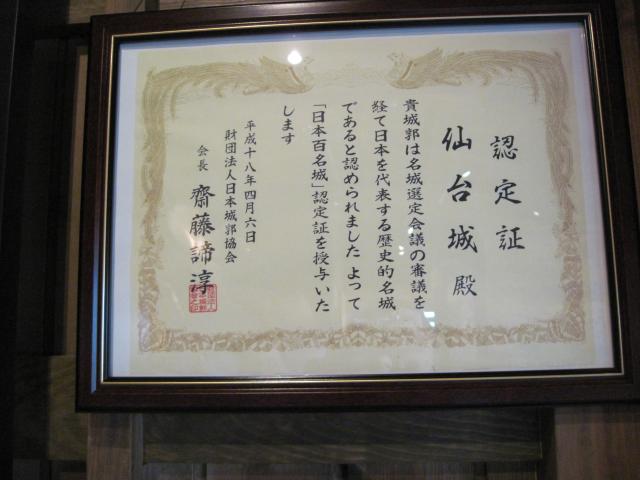 認定証
仙台城殿
貴城郭は名城選定会議の審議を
経て日本を代表する歴史的名城
であると認められました よって
「日本百名城」認定証を授与いた
します
平成十八年四月六日
財団法人日本城郭協会
会長 齋藤諦淳